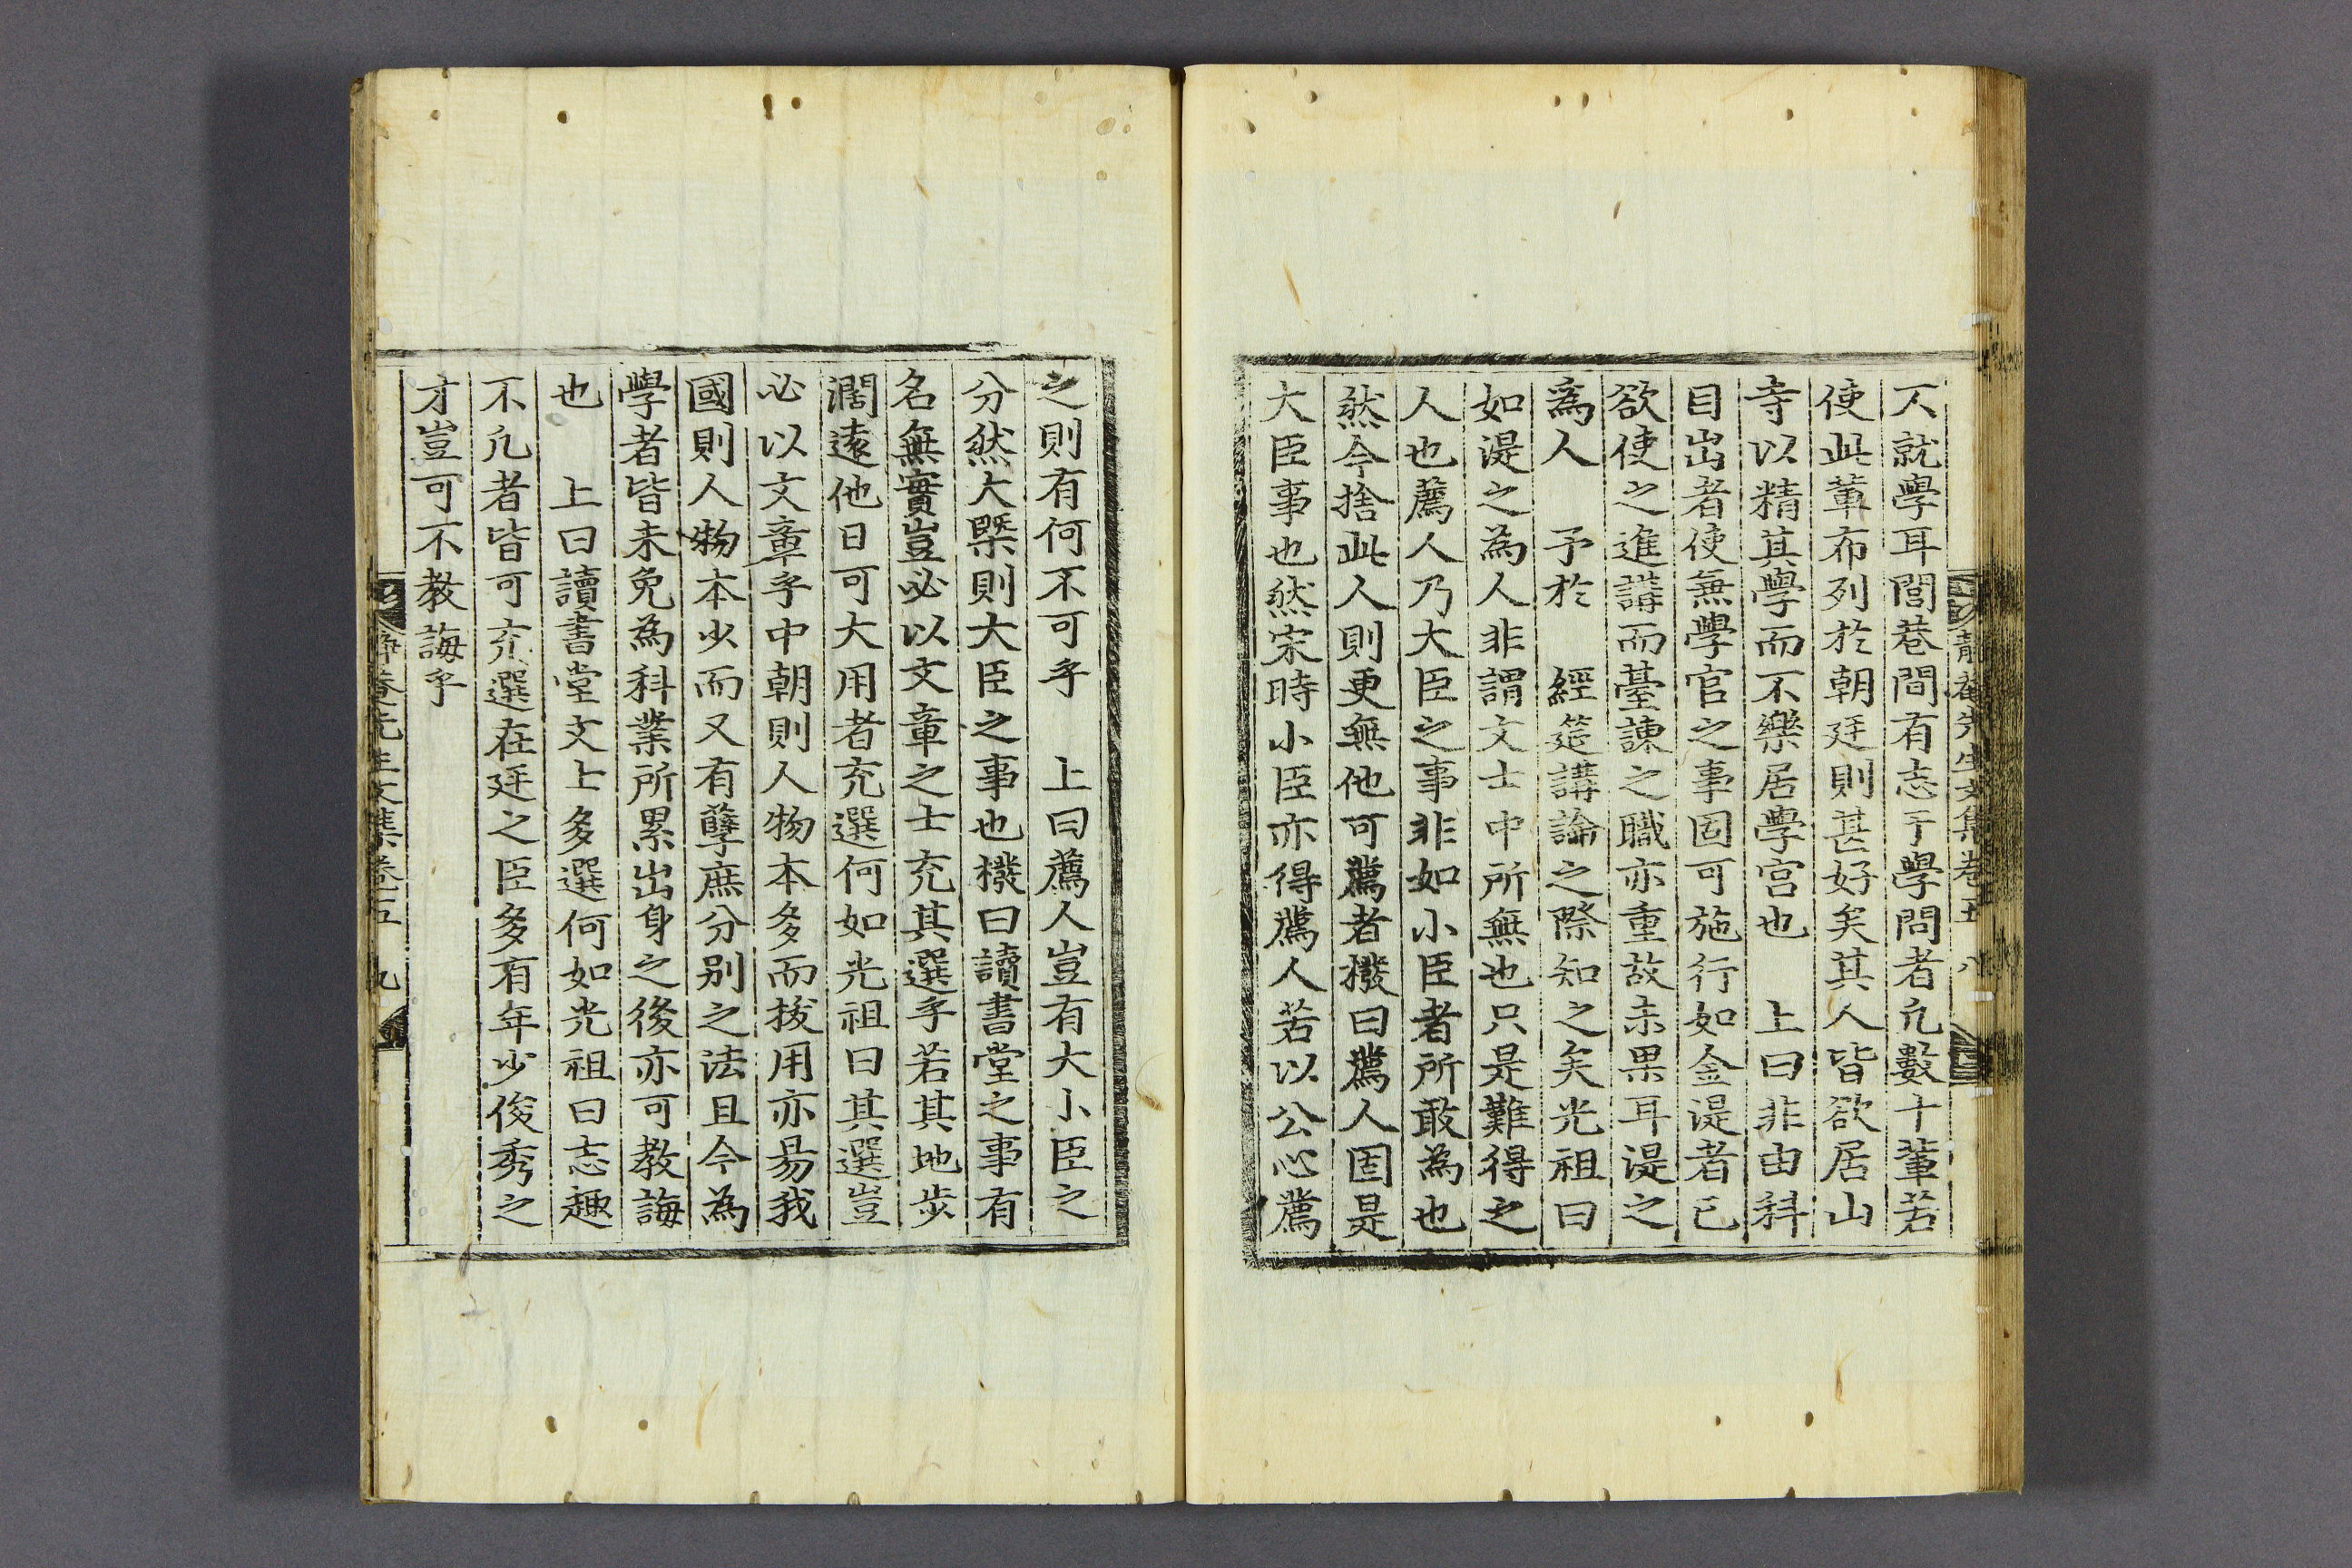 靜菴先生文集卷五 八
不就學耳閭巷間有志于學問者凡數十輩若
使此輩布列於朝廷則甚好矣其人皆欲居山
寺以精其學而不樂居學宮也 上曰非由科
目出者使無學官之事固可施行如金湜者已
欲使之進講而臺諫之職亦重故未果耳湜之
為人 予於 經筵講論之際知之矣光祖曰
如湜之為人非謂文士中所無也只是難得之
人也薦人乃大臣之事非如小臣者所敢為也
然今捨此人則更無他可薦者撥曰薦人固是
大臣事也然宋時小臣亦得薦人若以公心薦
之則有何不可乎 上曰薦人豈有大小臣之
分然大槩則大臣之事也撥曰讀書堂之事有
名無實豈必以文章之士充其選乎若其地步
濶遠他日可大用者充選何如光祖曰其選豈
必以文章乎中朝則人物本多而拔用亦昜我
國則人物本少而又有孽庶分别之法且今為
學者皆未免為科業所累出身之後亦可教誨
也 上曰讀書堂文士多選何如光祖曰志趣
不凡者皆可充選在廷之臣多有年少俊秀之
才豈可不教誨乎
靜菴先生文集卷五 九